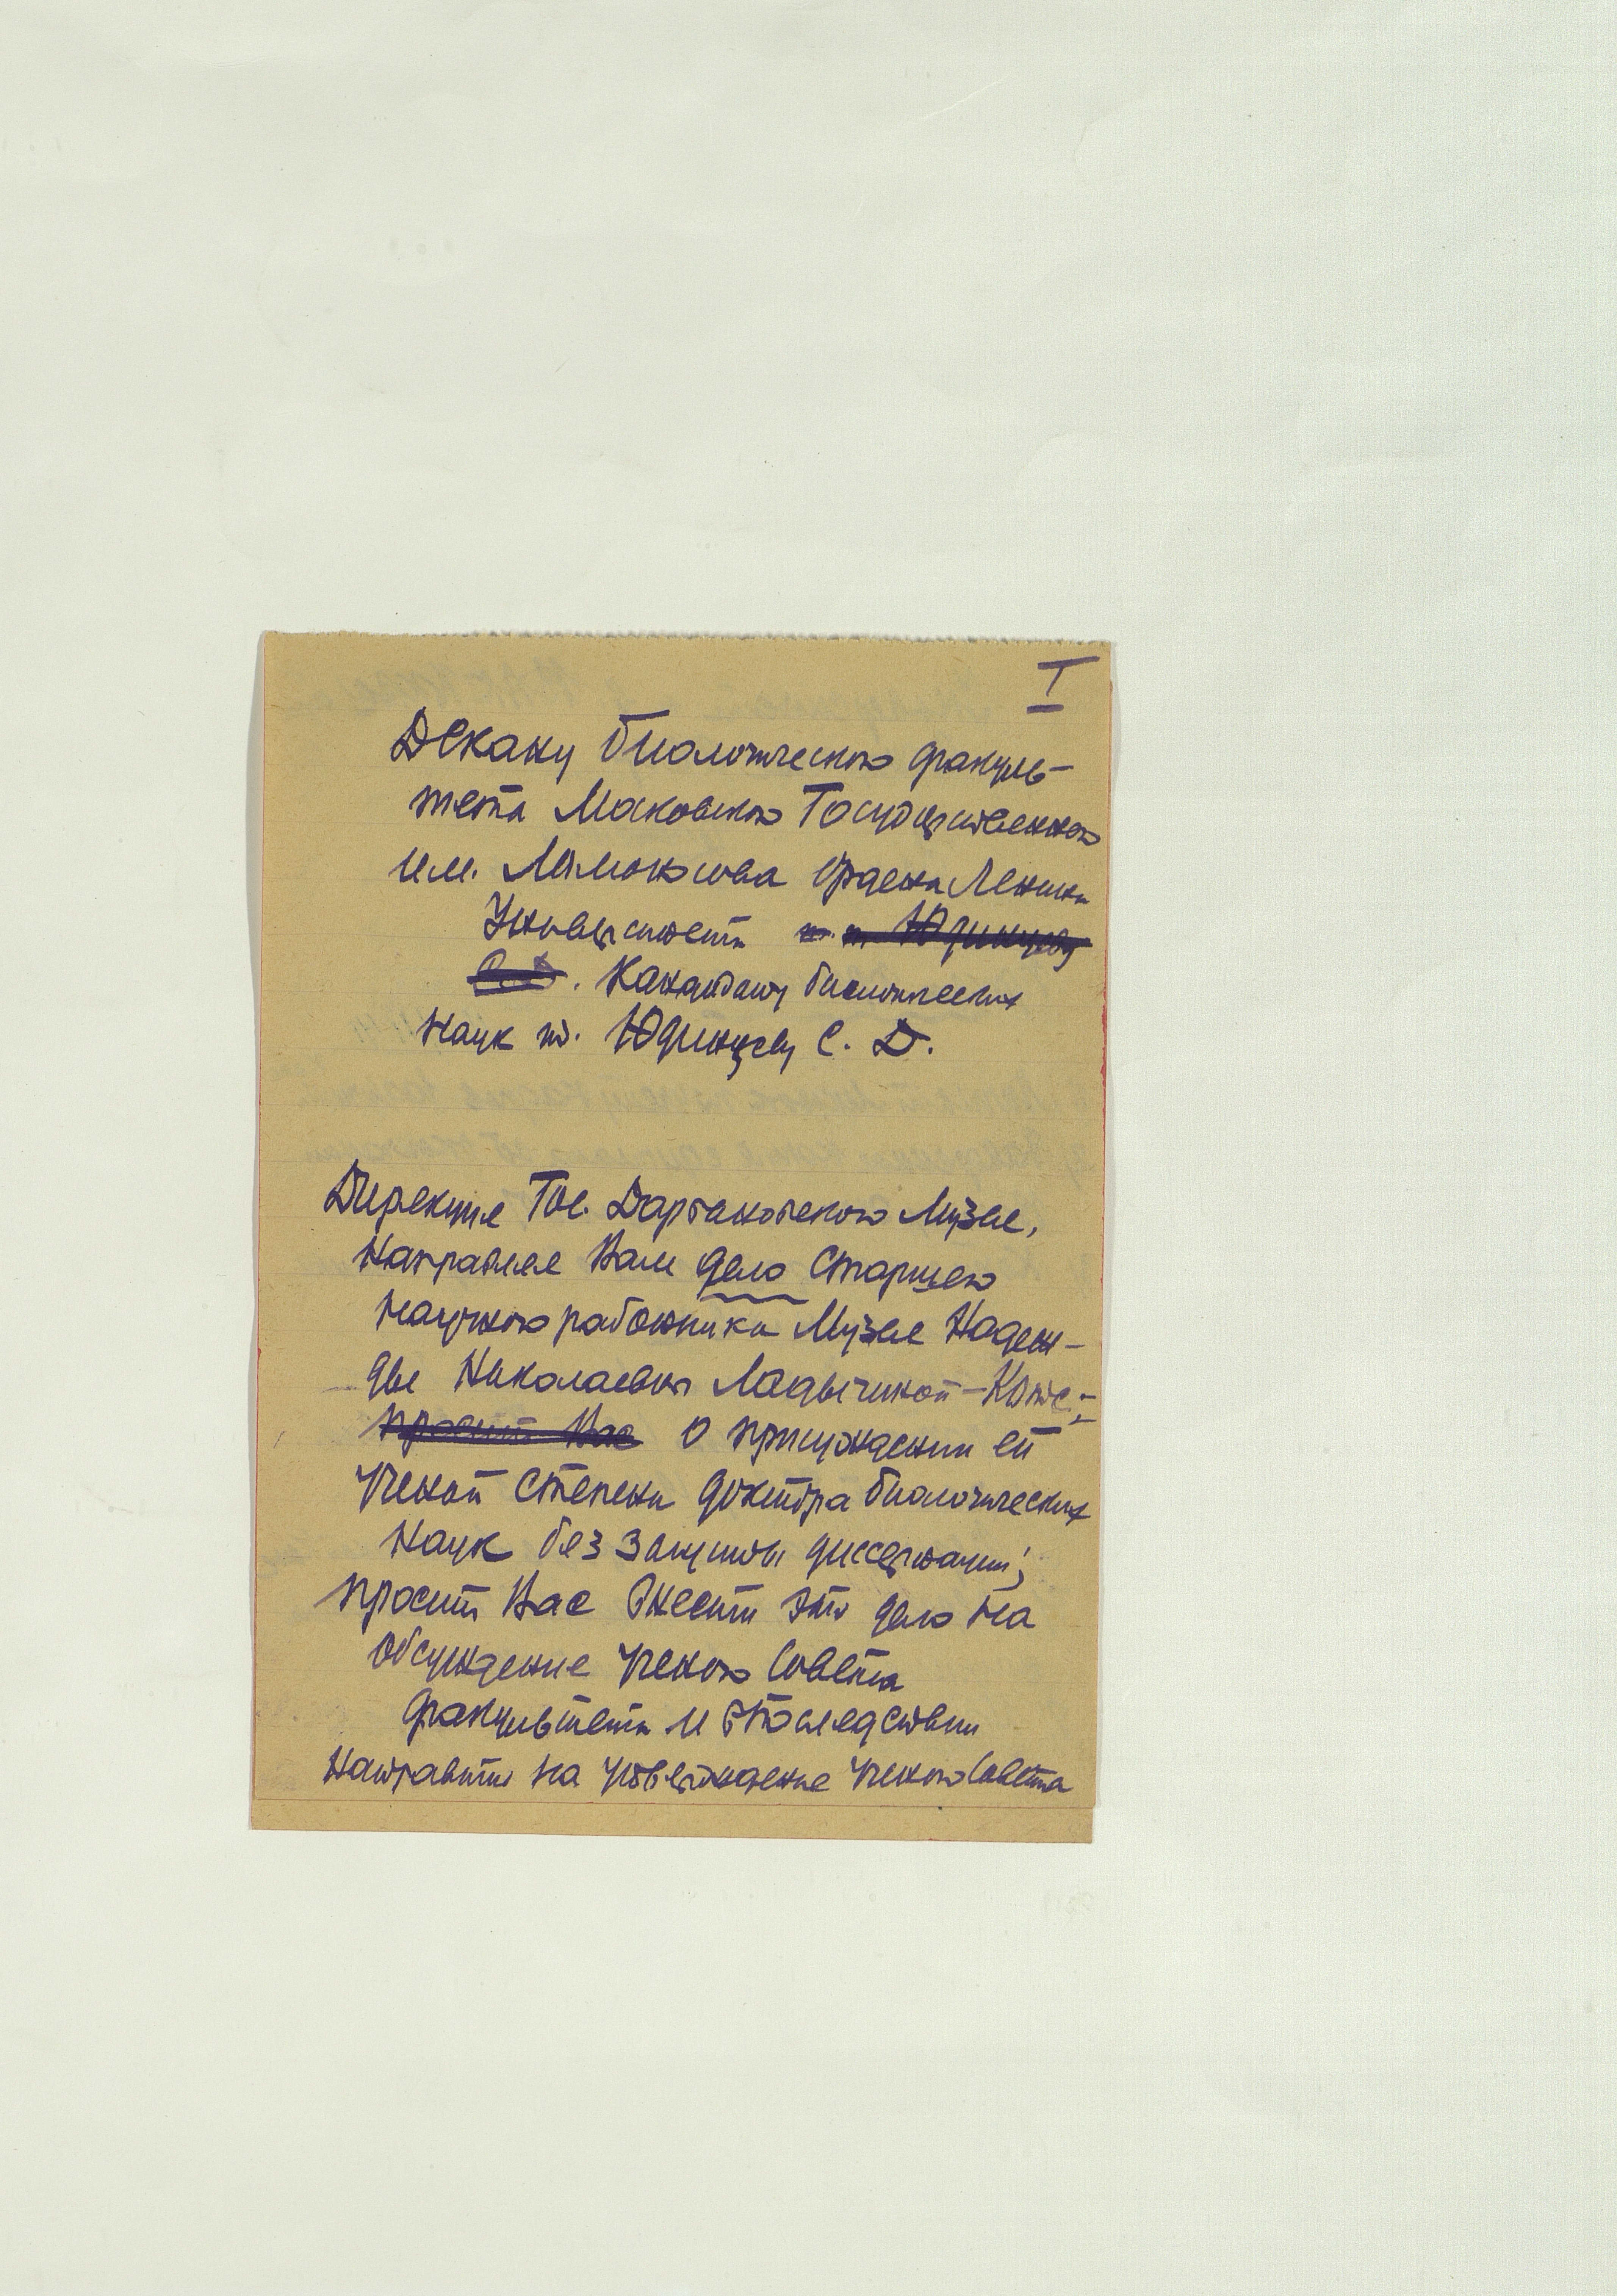 I
Декану биологического факуль-
тета Московского Государственного
им. Ломоносова ордена Ленина
Университета т. т. Юдинцеву
С. Д. Кандидату биологических
наук т. Юдинцеву С. Д.
Дирекция Гос. Дарвиновского Музея,
Направляя Вам дело Старшего
научного работника Музея Надеж-
ды Николаевны Ладыгиной-Котс,-
просит Вас о присуждении ей
Ученой Степени доктора биологических
Наук без защиты диссертации;
просит Вас внести это дело на
Обсуждение Ученого Совета
факультета и впоследствии
Направить на утверждение Ученого Совета